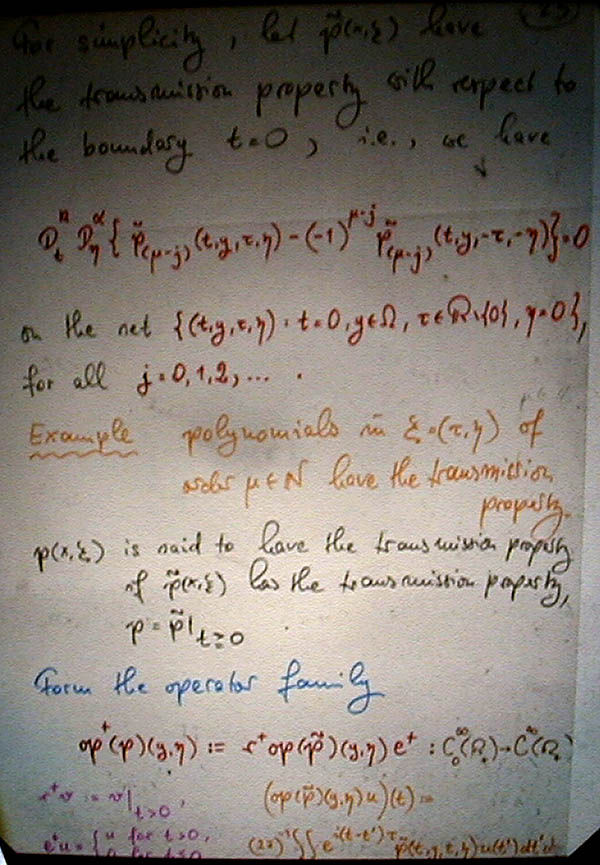 (23)
For simplicity, let p̃(x,ξ) have
the transmission property with respect to
the boundary t=0, i.e., we have
D_t^n D_η^α { p̃_(μ-j) (t,y,τ,η) - (-1)^{μ-j} p̃_(μ-j) (t,y,-τ,-η)} = 0
on the set {(t,y,τ,η) : t=0, y∈Ω, τ∈ℝ\{0}, η=0},
for all j=0,1,2,... .
Example polynomials in ξ=(τ,η) of
order μ∈ℕ have the transmission
property.
p(x,ξ) is said to have the transmission property
if p̃(x,ξ) has the transmission property,
p = p̃|_{t≥0}
Form the operator family
op⁺(p)(y,η) := r⁺op(p̃)(y,η) e⁺ : C_0^∞(ℝ₊)→C^∞(ℝ₊)
r⁺v := v|_{t>0},
(op(p̃)(y,η)u)(t) =
e⁺u = { u for t>0,
0 for t≤0
(2π)^{-1}∫∫e^{i(t-t')τ} p̃(t,y,τ,η)u(t')dt'